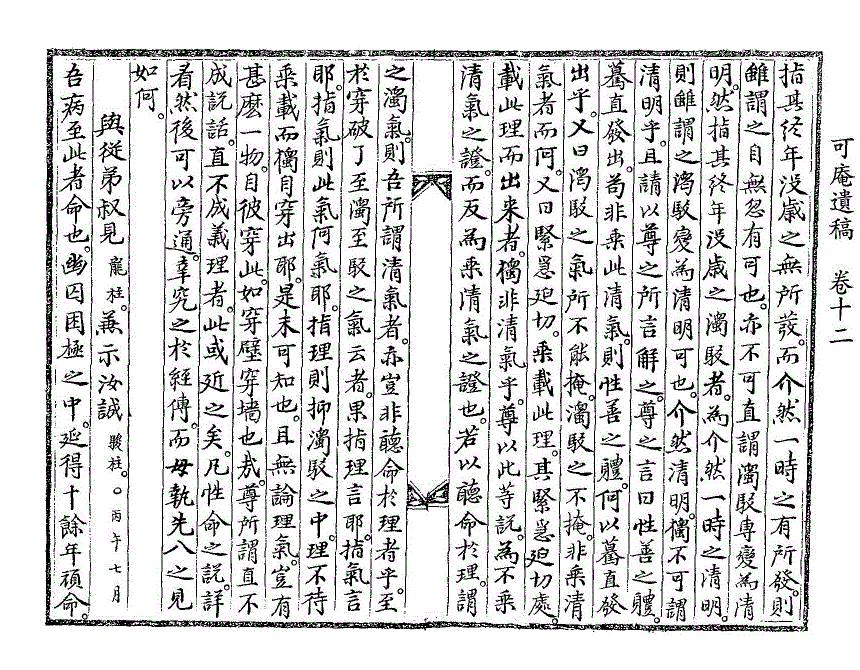 可庵遺稿 卷十二
指其終年沒歲之無所發。而介然一時之有所發。則
雖謂之自無忽有可也。亦不可直謂濁駁專變爲清
明。然指其終年沒歲之濁駁者。爲介然一時之清明。
則雖謂之濁駁變爲清明可也。介然清明。獨不可謂
清明乎。且請以尊之所言解之。尊之言曰性善之體。
驀直發出。苟非乘此清氣。則性善之體。何以驀直發
出乎。又曰濁駁之氣所不能掩。濁駁之不掩。非乘清
氣者而何。又曰緊急廹切。乘載此理。其緊急廹切處。
載此理而出來者。獨非清氣乎。尊以此等說。爲不乘
清氣之證。而反爲乘清氣之證也。若以聽命於理。謂
之濁氣。則吾所謂清氣者。亦豈非聽命於理者乎。至
於穿破了至濁至駁之氣云者。果指理言耶。指氣言
耶。指氣則此氣何氣耶。指理則抑濁駁之中。理不待
乘載而獨自穿出耶。是未可知也。且無論理氣。豈有
甚麽一物。自彼穿此。如穿壁穿墻也哉。尊所謂直不
成說話。直不成義理者。此或近之矣。凡性命之說。詳
看然後可以旁通。幸究之於經傳。而毋執先入之見
如何。
與從弟叔見 寵柱。 兼示汝誠 駿柱。○丙午七月
吾病至此者命也。幽囚困極之中。延得十餘年頑命。